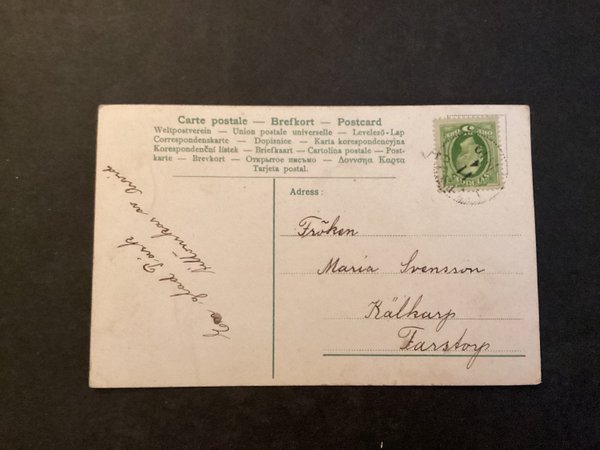 Carte postale — Brefkort — Postcard
Weltpostverein — Union postale universelle — Levelező-Lap
Correspondenskarte — Dopisnice — Karta korespondencyjna
Korespondenční lístek — Briefkaart — Cartolina postale — Post-
karte — Brevkort — Открытое письмо — Δοννησα Καρτα
Tarjeta postal.
Adress:
Fröken
Maria Svensson
Kälkarp
Farstorp
glad Påsk
tillönskas av